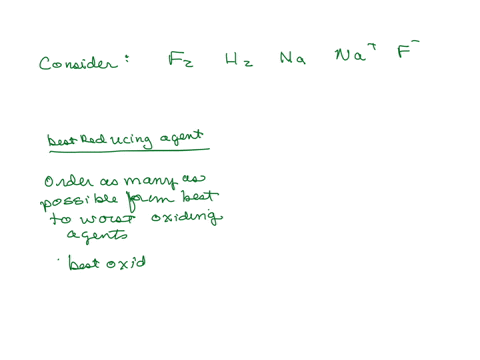 Consider: F₂ H₂ Na Na⁺ F⁻
best Reducing agent
Order as many as
possible form best
to worst oxiding
agents
best oxid